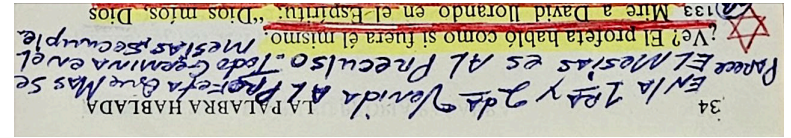 34 LA PALABRA HABLADA
EN la 1RA y 2da Venida AL Profeta Que Mas Se
Parece EL Mesias es AL Preculso. Todo Germina en el
Mesias, Se cumple.
¿Ve? El profeta habló como si fuera él mismo.
133 Mire a David llorando en el Espíritu: “Dios míos, Dios